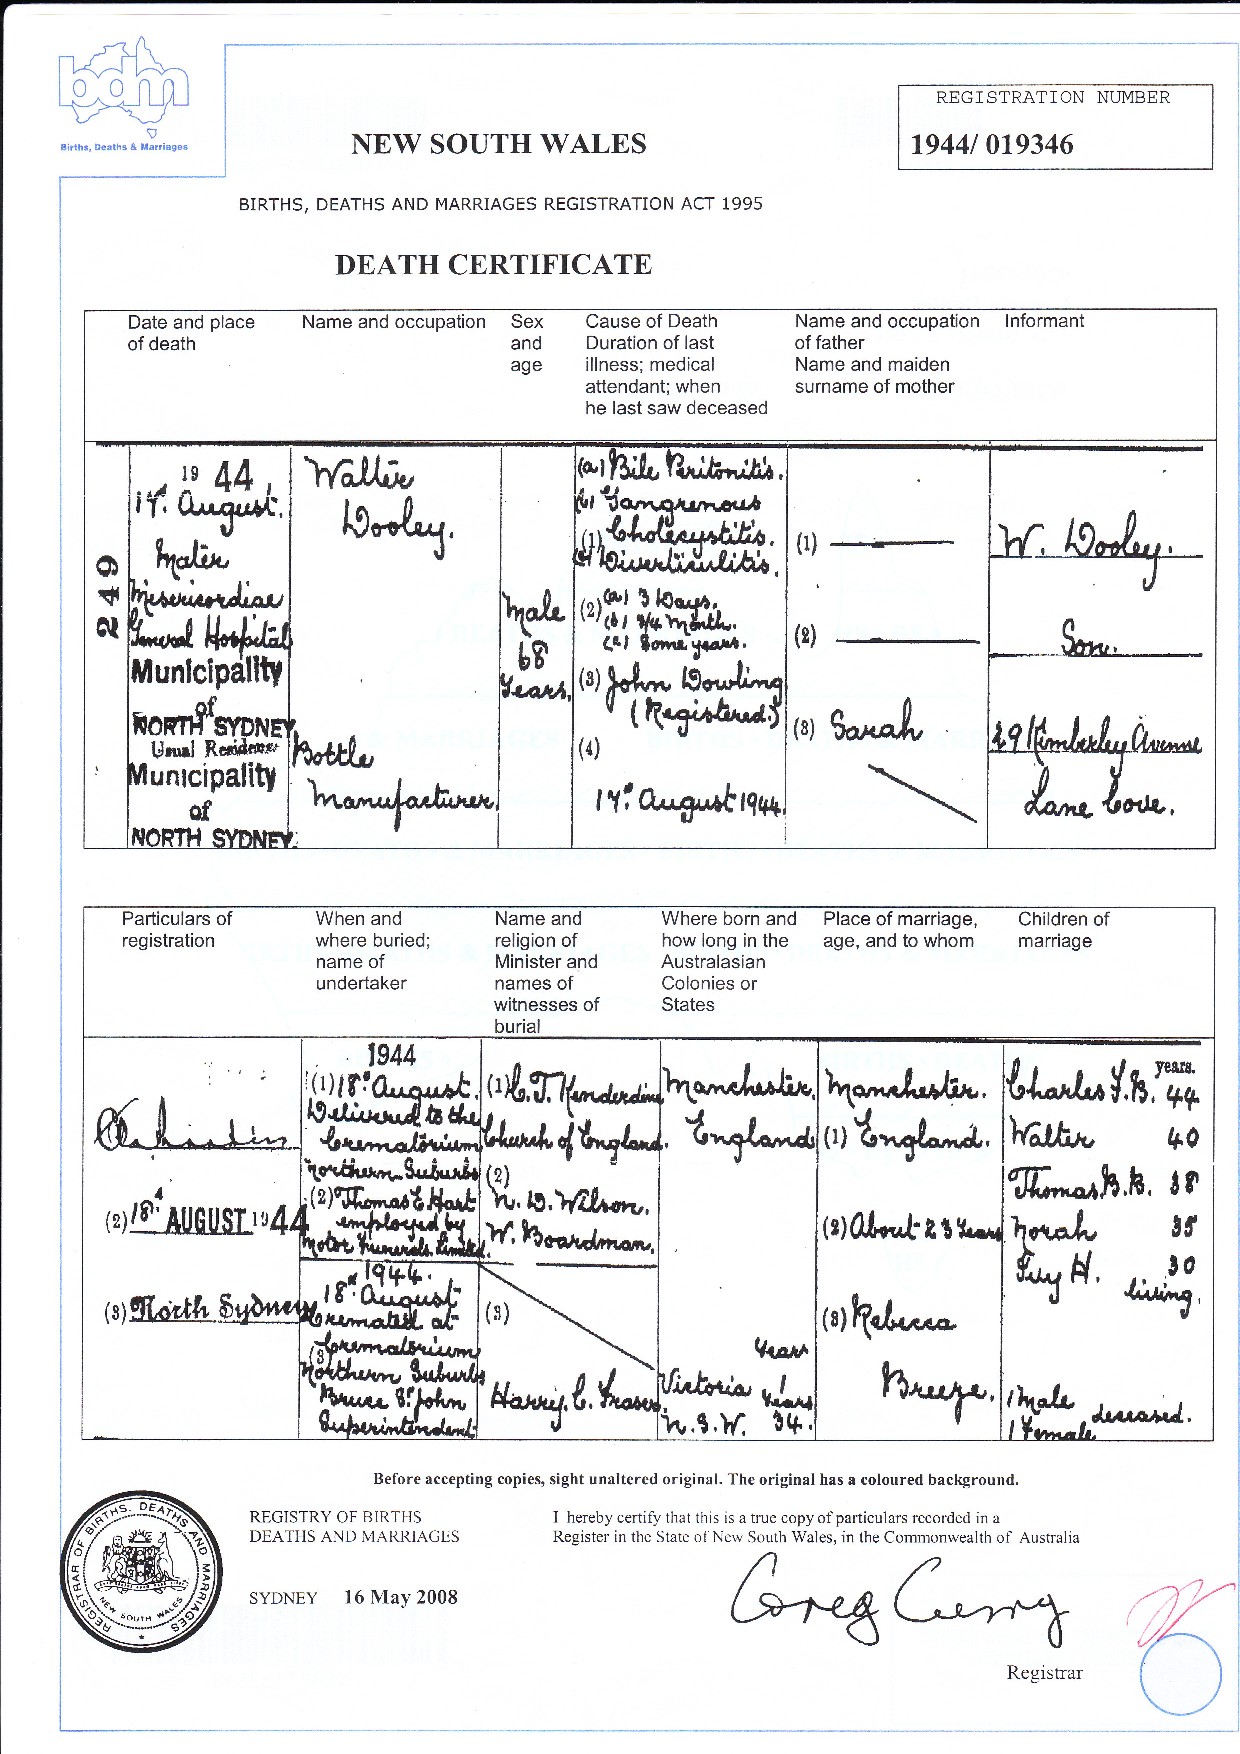 bdm
Births, Deaths & Marriages
REGISTRATION NUMBER
1944/ 019346
NEW SOUTH WALES
BIRTHS, DEATHS AND MARRIAGES REGISTRATION ACT 1995
DEATH CERTIFICATE
Date and place
of death
Name and occupation
Sex
and
age
Cause of Death
Duration of last
illness; medical
attendant; when
he last saw deceased
Name and occupation
of father
Name and maiden
surname of mother
Informant
249
1944
17th August.
Mater
Misericordiae
General Hospital
Municipality
of
NORTH SYDNEY
Usual Residence
Municipality
of
NORTH SYDNEY.
Walter
Dooley.
Bottle
Manufacturer.
Male
68
Years.
(a) Bile Peritonitis.
(b) Gangrenous
(1) Cholecystitis.
Diverticulitis.
(2) (a) 3 Days.
(b) 3/4 Month.
Some years.
(3) John Dowling
(Registered.)
(4)
17th August 1944.
(1)
(2)
(3) Sarah
W. Dooley.
Son.
29 Kimberley Avenue
Lane Cove.
Particulars of
registration
When and
where buried;
name of
undertaker
Name and
religion of
Minister and
names of
witnesses of
burial
Where born and
how long in the
Australasian
Colonies or
States
Place of marriage,
age, and to whom
Children of
marriage
(2) 18th AUGUST 1944
(3) North Sydney
1944
(1) 18th August.
Delivered to the
Crematorium
Northern Suburbs
(2) Thomas E Hart
employed by
Motor Funerals Limited.
1944.
18th August
Cremated at
(3) Crematorium
Northern Suburbs
Bruce St. John
Superintendent
(1) C. T. Kenderdine
Church of England.
(2)
N. D. Wilson.
W. Boardman.
(3)
Harry. C. Fraser.
Manchester.
England
Years
Victoria 1
Years
N. S. W. 34.
Manchester.
(1) England.
(2) About 23 Years
(3) Rebecca
Breeze.
years.
Charles F. B. 44
Walter 40
Thomas B. B. 38
Norah 35
Guy H. 30
living.
1 Male
deceased.
1 Female
Before accepting copies, sight unaltered original. The original has a coloured background.
REGISTRAR OF BIRTHS. DEATHS AND MARRIAGES
NEW SOUTH WALES
REGISTRY OF BIRTHS
DEATHS AND MARRIAGES
SYDNEY 16 May 2008
I hereby certify that this is a true copy of particulars recorded in a
Register in the State of New South Wales, in the Commonwealth of Australia
Greg Curry
Registrar